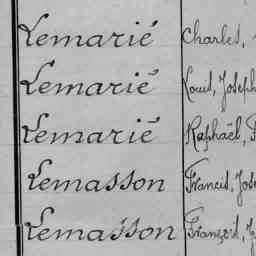 Lemarié Charles,
Lemarié Louis, Joseph
Lemarié Raphaël,
Lemasson Francis, Jos
Lemasson François, J